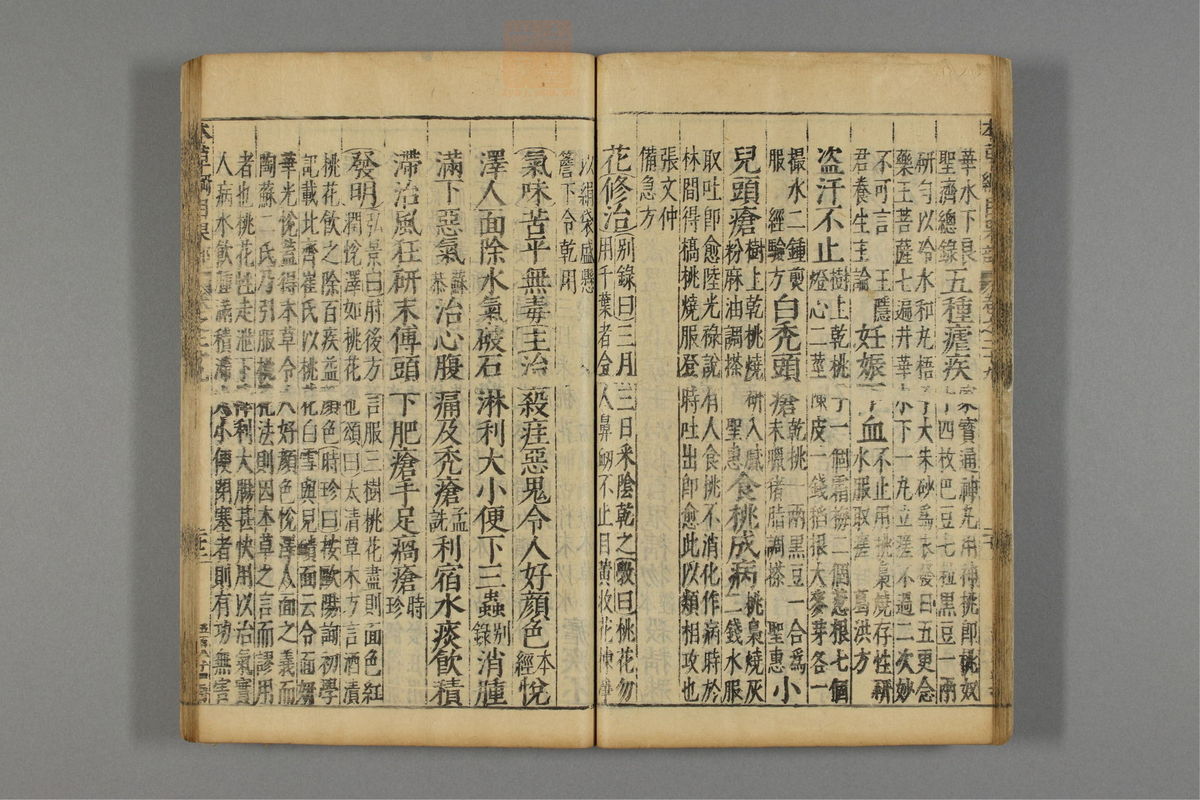 華水下良
聖濟總錄五種瘧疾家寶通神丸用神桃即桃奴
十四枚巴豆七粒黑豆一兩
研勻以冷水和丸梧子大朱砂爲衣發日五更念
藥王菩薩七遍井華水下一丸立瘥不過二次妙
不可言 王隱
君養生主論妊娠下血不止用桃梟燒存性研
水服取瘥 葛洪方
盜汗不止樹上乾桃子一個霜梅二個葱根七個
燈心二莖陳皮一錢稻根大麥芽各一
撮水二鍾煎
服 經驗方白禿頭瘡乾桃一兩黑豆一合爲
末臘猪脂調搽 聖惠小
兒頭瘡樹上乾桃燒研入膩
粉麻油調搽 聖惠食桃成病桃梟燒灰
二錢水服
取吐即愈陸光祿說有人食桃不消化作病時於
林間得槁桃燒服登時吐出即愈此以類相攻也
張文仲
備急方
花修治別錄曰三月三日采陰乾之斅曰桃花勿
用千葉者令人鼻衄不止目黃收花揀淨
以絹袋盛懸
簷下令乾用
氣味苦平無毒主治殺疰惡鬼令人好顔色本經悅
澤人面除水氣破石淋利大小便下三蟲別錄消腫
滿下惡氣蘇恭治心腹痛及禿瘡孟詵利宿水痰飲積
滯治風狂研末傅頭下肥瘡手足㾧瘡時珍
發明弘景曰肘後方言服三樹桃花盡則面色紅
潤悅澤如桃花也頌曰太清草木方言酒漬
桃花飲之除百疾益顔色時珍曰按歐陽詢初學
記載北齊崔氏以桃花白雪與兒靧面云令面妍
華光悅蓋得本草令人好顔色悅澤人面之義而
陶蘇二氏乃引服桃花法則因本草之言而謬用
者也桃花性走泄下降利大腸甚快用以治氣實
人病水飲腫滿積滯大小便閉塞者則有功無害